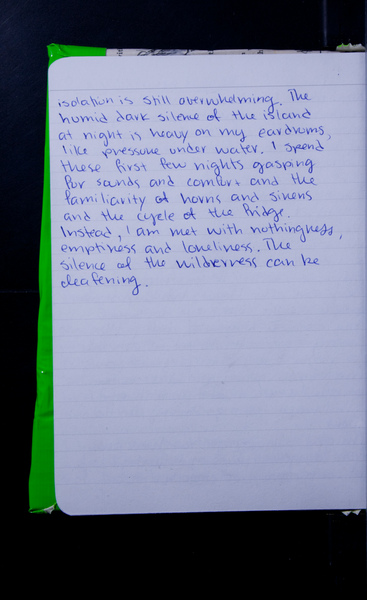 isolation is still overwhelming. The
humid dark silence of the island
at night is heavy on my eardrums,
like pressure under water. I spend
these first few nights gasping
for sounds and comfort and the
familiarity of horns and sirens
and the cycle of the fridge.
Instead, I am met with nothingness,
emptiness and loneliness. The
silence of the wilderness can be
deafening.